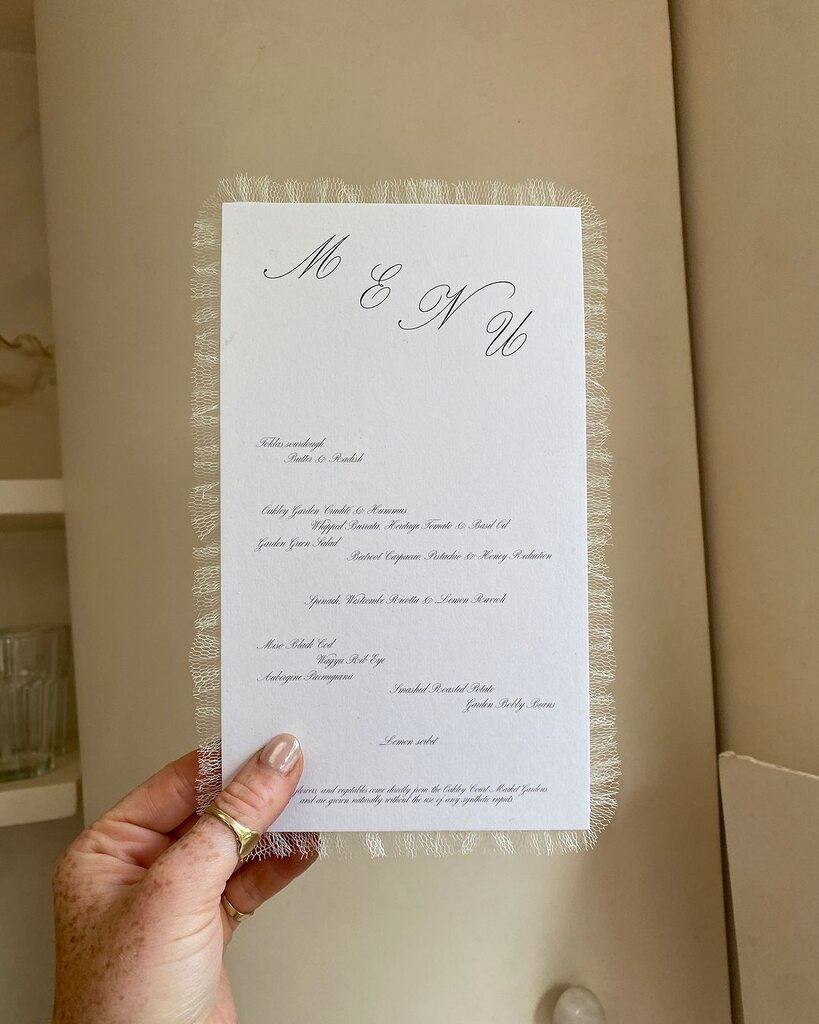 MENU
Toklas sourdough
Butter & Radish
Oakley Garden Crudité & Hummus
Whipped Burrata, Heritage Tomato & Basil Oil
Garden Green Salad
Beetroot Carpaccio, Pistachio & Honey Reduction
Spinach, Westcombe Ricotta & Lemon Ravioli
Miso Black Cod
Wagyu Rib Eye
Aubergine Parmigiana
Smashed Roasted Potato
Garden Bobby Beans
Lemon sorbet
and vegetables come directly from the Oakley Court Market Gardens
and are grown naturally without the use of any synthetic inputs